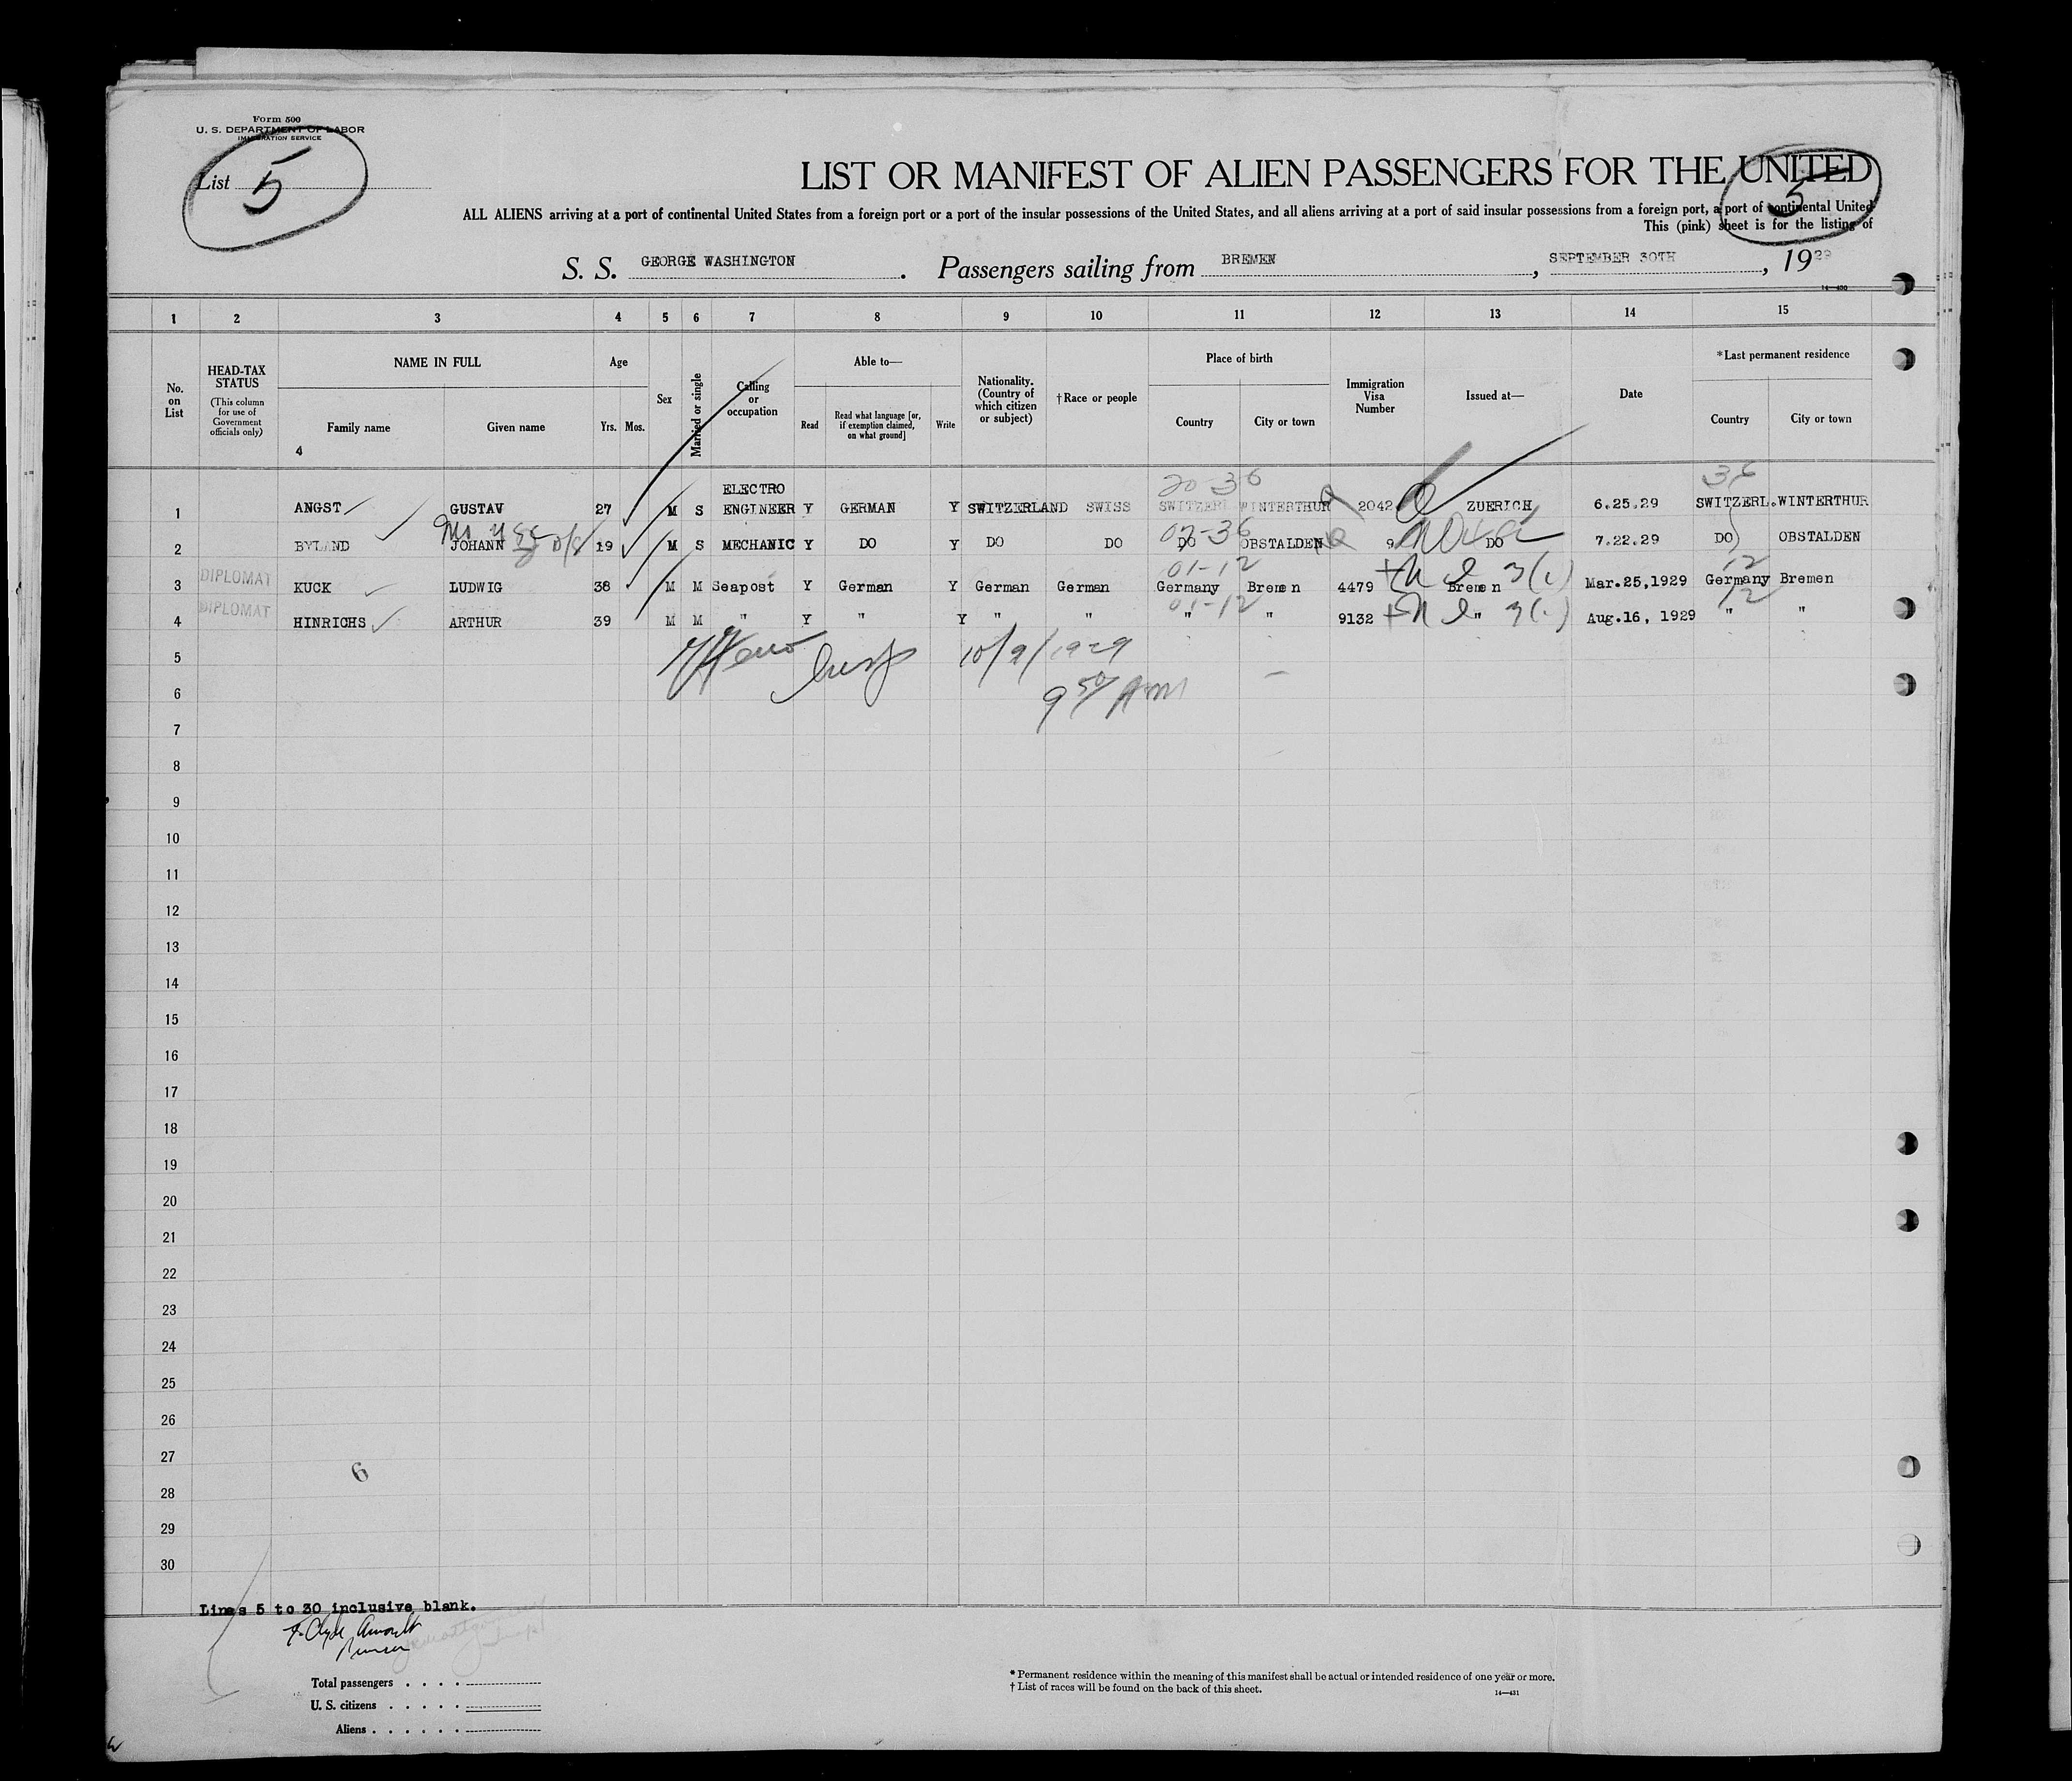 Form 500
U. S. DEPARTMENT OF LABOR
IMMIGRATION SERVICE
List 5
5
LIST OR MANIFEST OF ALIEN PASSENGERS FOR THE UNITED
ALL ALIENS arriving at a port of continental United States from a foreign port or a port of the insular possessions of the United States, and all aliens arriving at a port of said insular possessions from a foreign port, a port of continental United
This (pink) sheet is for the listing of
S. S. GEORGE WASHINGTON . Passengers sailing from BREMEN , SEPTEMBER 30TH , 1929
14—430
1 2 3 4 5 6 7 8 9 10 11 12 13 14 15
No. on List
HEAD-TAX STATUS (This column for use of Government officials only)
NAME IN FULL
Family name
Given name
4
Age
Yrs. Mos.
Sex
Married or single
Calling or occupation
Able to—
Read
Read what language [or, if exemption claimed, on what ground]
Write
Nationality. (Country of which citizen or subject)
†Race or people
Place of birth
Country
City or town
Immigration Visa Number
Issued at—
Date
*Last permanent residence
Country
City or town
20-36 36
1 ANGST GUSTAV 27 M S ELECTRO ENGINEER Y GERMAN Y SWITZERLAND SWISS SWITZERL WINTERTHUR 2042 ZUERICH 6.25.29 SWITZERL. WINTERTHUR
07-36
2 BYLAND JOHANN 19 M S MECHANIC Y DO Y DO DO DO OBSTALDEN 9 DO 7.22.29 DO OBSTALDEN
01-12 12
3 DIPLOMAT KUCK LUDWIG 38 M M Seapost Y German Y German German Germany Bremen 4479 3(1) Bremen Mar.25,1929 Germany Bremen
01-12 12
4 DIPLOMAT HINRICHS ARTHUR 39 M M " Y " Y " " " " 9132 " 3(1) Aug.16, 1929 " "
5 10/9/1929
6 9 50/ AM
7
8
9
10
11
12
13
14
15
16
17
18
19
20
21
22
23
24
25
26
27
6
28
29
30
Lines 5 to 30 inclusive blank.
Total passengers . . . .
U. S. citizens . . . . .
Aliens . . . . . .
* Permanent residence within the meaning of this manifest shall be actual or intended residence of one year or more.
† List of races will be found on the back of this sheet.
14—431